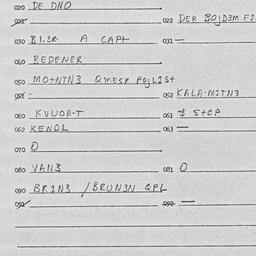 020 DE DNO
022 DER BOJD3M F1
030 B1.3R A CAPt 031 —
040 BEDENER
050 MOtNTN3 QMESR POJLISt
051 — 052 KALA-MITN3
060 KVUOR-T 061 $ StOP
062 KENDL 063 —
070 O
080 VAN3 081 O
090 BRIN3 / BRUN3N QPL
092 —